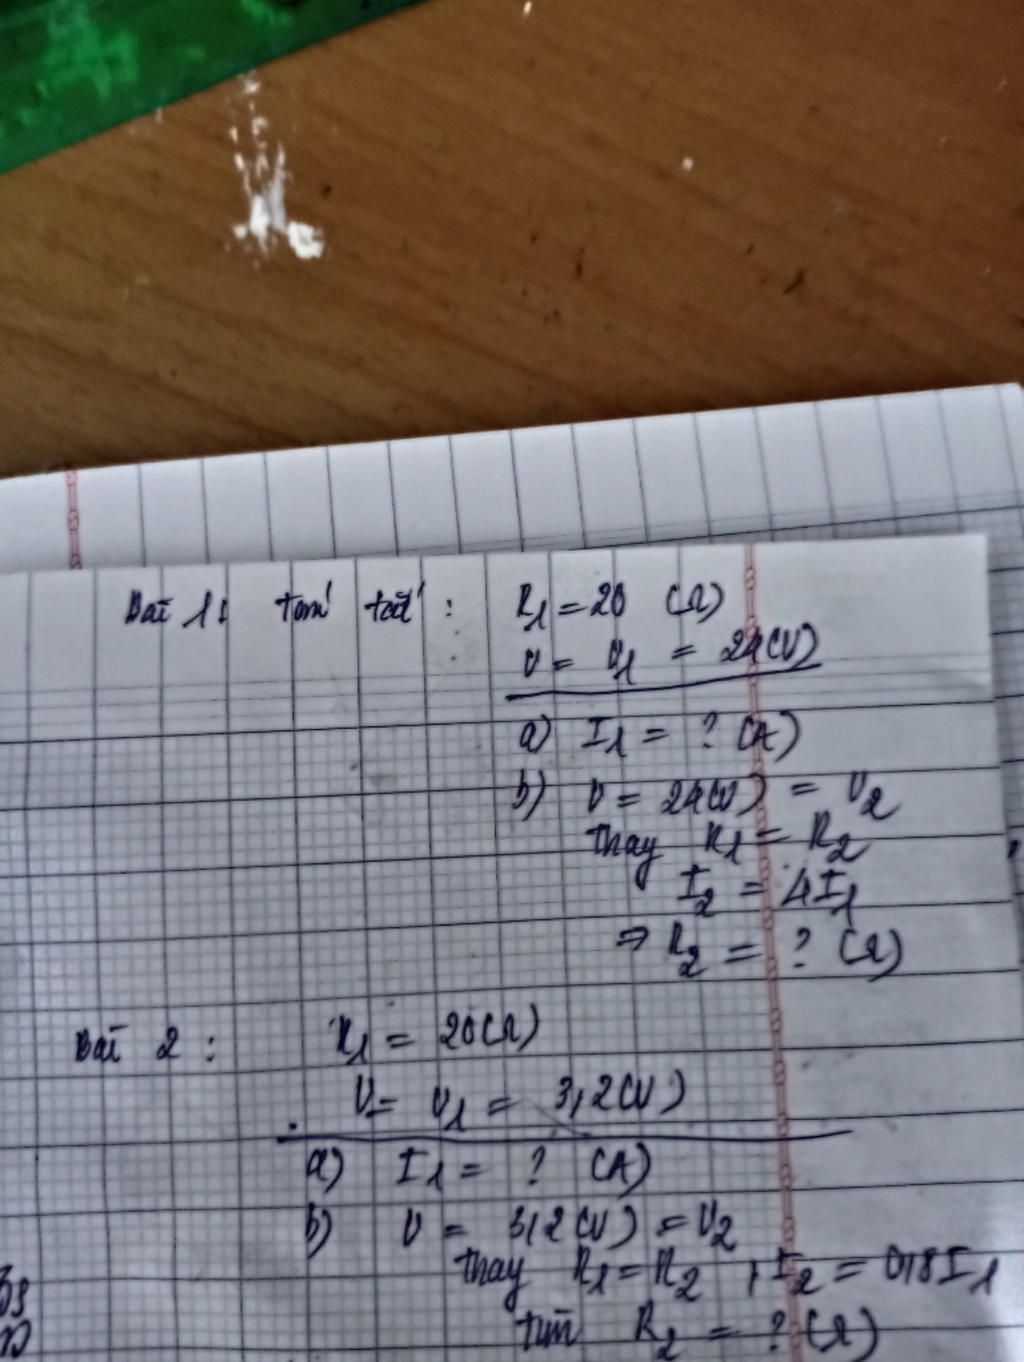 Bài 1: tóm tắt: R₁ = 20 (Ω)
U = U₁ = 24(V)
a) I₁ = ? (A)
b) U = 24(V) = U₂
thay R₁ = R₂
I₂ = 4I₁
⇒ R₂ = ? (Ω)
Bài 2: R₁ = 20(Ω)
U = U₁ = 3,2(V)
a) I₁ = ? (A)
b) U = 3,2(V) = U₂
thay R₁ = R₂, I₂ = 0,8I₁
tìm R₂ = ? (Ω)